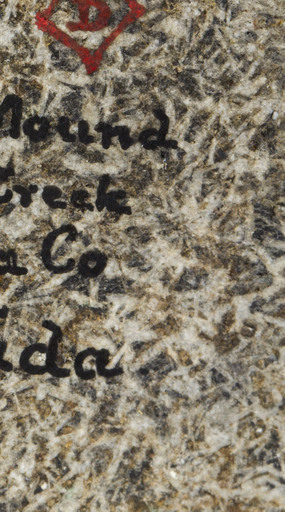 D
Mound
Creek
a Co
ida